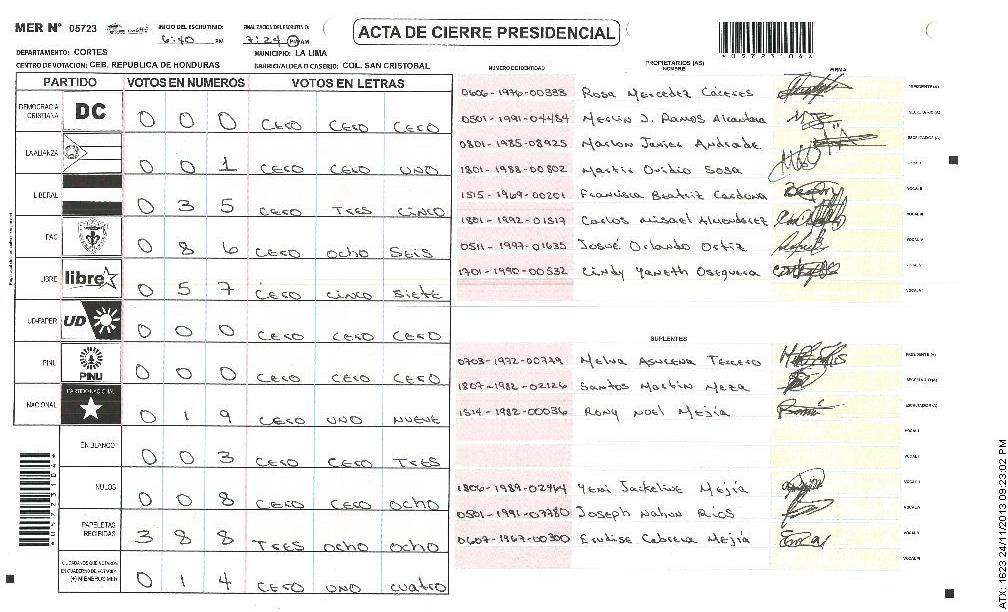 MER N° 05723
INICIO DEL ESCRUTINIO: 6:40 PM
FINALIZACION DEL ESCRUTINIO: 7:24 PM AM
ACTA DE CIERRE PRESIDENCIAL
05723104
DEPARTAMENTO: CORTES
MUNICIPIO: LA LIMA
CENTRO DE VOTACION: CEB. REPUBLICA DE HONDURAS
BARRIO/ALDEA O CASERIO: COL. SAN CRISTOBAL
PARTIDO VOTOS EN NUMEROS VOTOS EN LETRAS
DEMOCRACIA CRISTIANA DC 0 0 0 CERO CERO CERO
LA ALIANZA 0 0 1 CERO CERO UNO
LIBERAL 0 3 5 CERO TRES CINCO
PAC 0 8 6 CERO OCHO SEIS
LIBRE libre 0 5 7 CERO CINCO SIETE
UD-FAPER UD 0 0 0 CERO CERO CERO
PINU PINU 0 0 0 CERO CERO CERO
NACIONAL PARTIDO NACIONAL 0 1 9 CERO UNO NUEVE
EN BLANCO 0 0 3 CERO CERO TRES
NULOS 0 0 8 CERO CERO OCHO
PAPELETAS RECIBIDAS 3 8 8 TRES OCHO OCHO
CIUDADANOS QUE VOTARON EN CUADERNO DE VOTACION (+) MIEMBROS MER 0 1 4 CERO UNO cuatro
*05723104*
NUMERO DE IDENTIDAD PROPIETARIOS (AS) NOMBRE FIRMA
0606-1976-00388 Rosa Mercedez Caceres PRESIDENTE (A)
0501-1991-04484 Merlin J. Ramos Alcantara SECRETARIO (A)
0801-1985-08925 Marlon Javier Andrade ESCRUTADOR (A)
1801-1988-00802 Martir Ovidio Sosa VOCAL I
1515-1969-00201 Francisca Beatriz Cardona VOCAL II
1801-1992-01517 Carlos Misael Almendarez VOCAL III
0511-1997-01635 Josué Orlando Ortiz VOCAL IV
1701-1990-00532 Cindy Yaneth Oseguera VOCAL V
VOCAL VI
SUPLENTES
0703-1972-00779 Melva Asucena Tercero PRESIDENTE (A)
1807-1982-02126 Santos Martin Meza SECRETARIO (A)
1514-1982-00036 Rony Noel Mejía ESCRUTADOR (A)
VOCAL I
VOCAL II
1806-1989-02464 Yeni Jackeline Mejía VOCAL III
0501-1991-07780 Joseph Nahun Rios VOCAL IV
0607-1967-00300 Erudise Cabrera Mejía VOCAL V
VOCAL VI
ATX: 1623 24/11/2013 09:23:02 PM